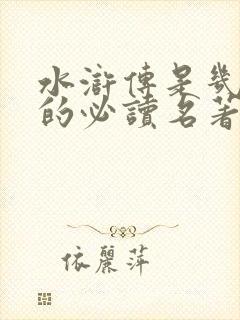 水滸傳是幾
的必讀名著
依麗萍